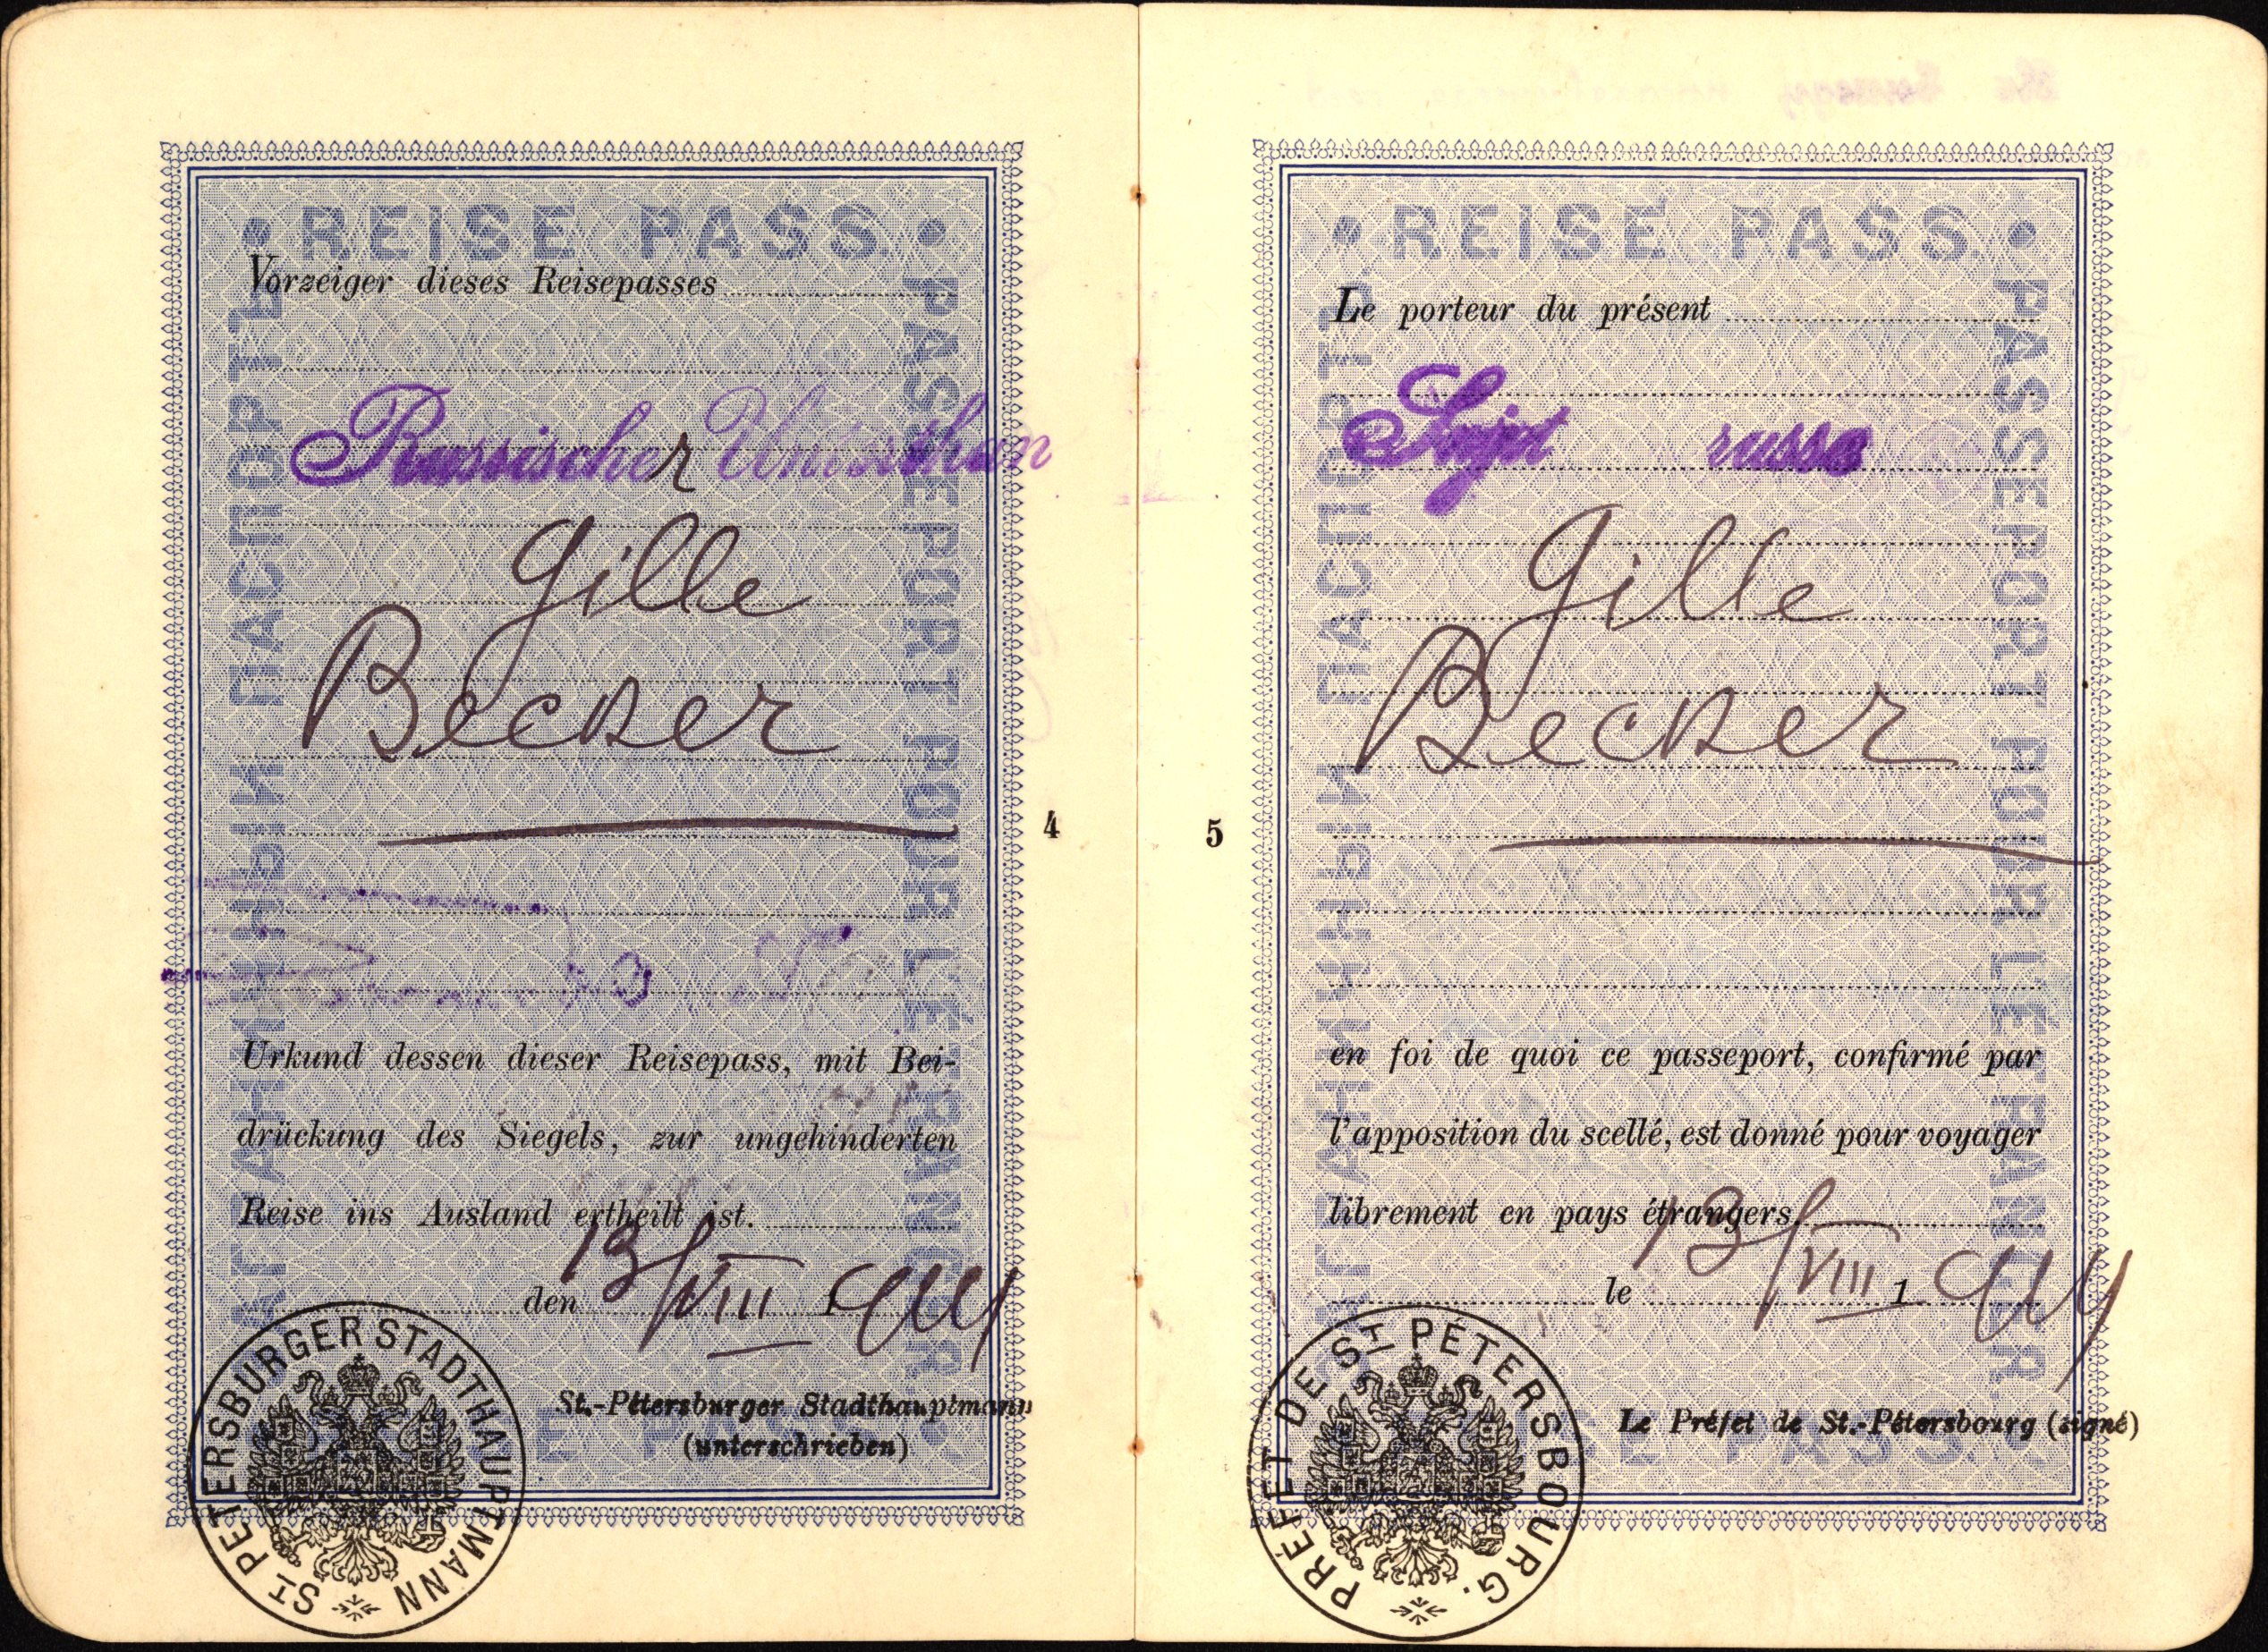 REISE PASS
ЗАГРАНИЧНЫЙ ПАСПОРТЪ
PASSEPORT POUR L'ÉTRANGER
Vorzeiger dieses Reisepasses
Russischer Unterthan
Gille
Becker
Urkund dessen dieser Reisepass, mit Bei-
drückung des Siegels, zur ungehinderten
Reise ins Ausland ertheilt ist.
den 13/VIII 1914
St.-Petersburger Stadthauptmann
(unterschrieben)
ST PETERSBURGER STADTHAUPTMANN
E PASS
4
REISE PASS
ЗАГРАНИЧНЫЙ ПАСПОРТЪ
PASSEPORT POUR L'ÉTRANGER
Le porteur du présent
Sujet russe
Gille
Becker
en foi de quoi ce passeport, confirmé par
l'apposition du scellé, est donné pour voyager
librement en pays étrangers.
le 13/VIII 1914
Le Préfet de St.-Pétersbourg (signé)
PRÉFET DE ST PÉTERSBOURG.
E PASS
5